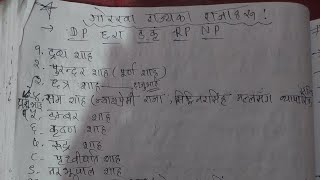 गोरखा राज्यका राजाहरू !
DP छरा डकृ RP NP
१. द्रव्य शाह
२. पुरन्दर शाह (पूर्ण शाह)
३. छत्र शाह
४. राम शाह (न्यायप्रेमी राजा,
५. डम्बर शाह
६. कृष्ण शाह
७. रुद्र शाह
८. पृथ्वीपति शाह
९. नरभूपाल शाह